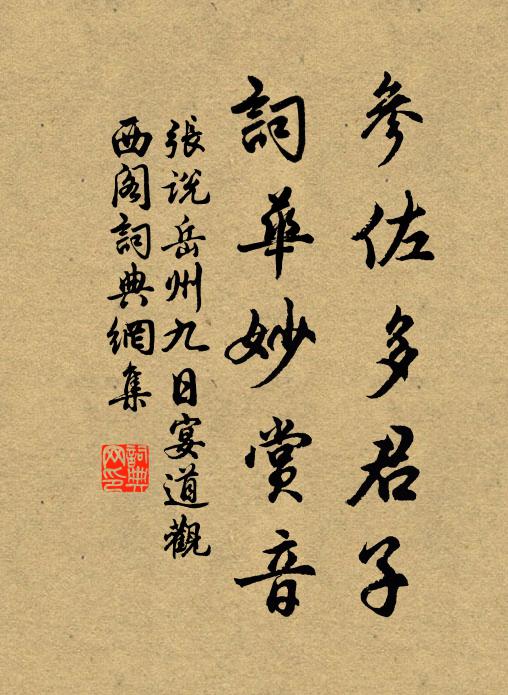 參佐多君子
詞華妙賞音
張說岳州九日宴道觀
西閣詞典網集
詞典網印